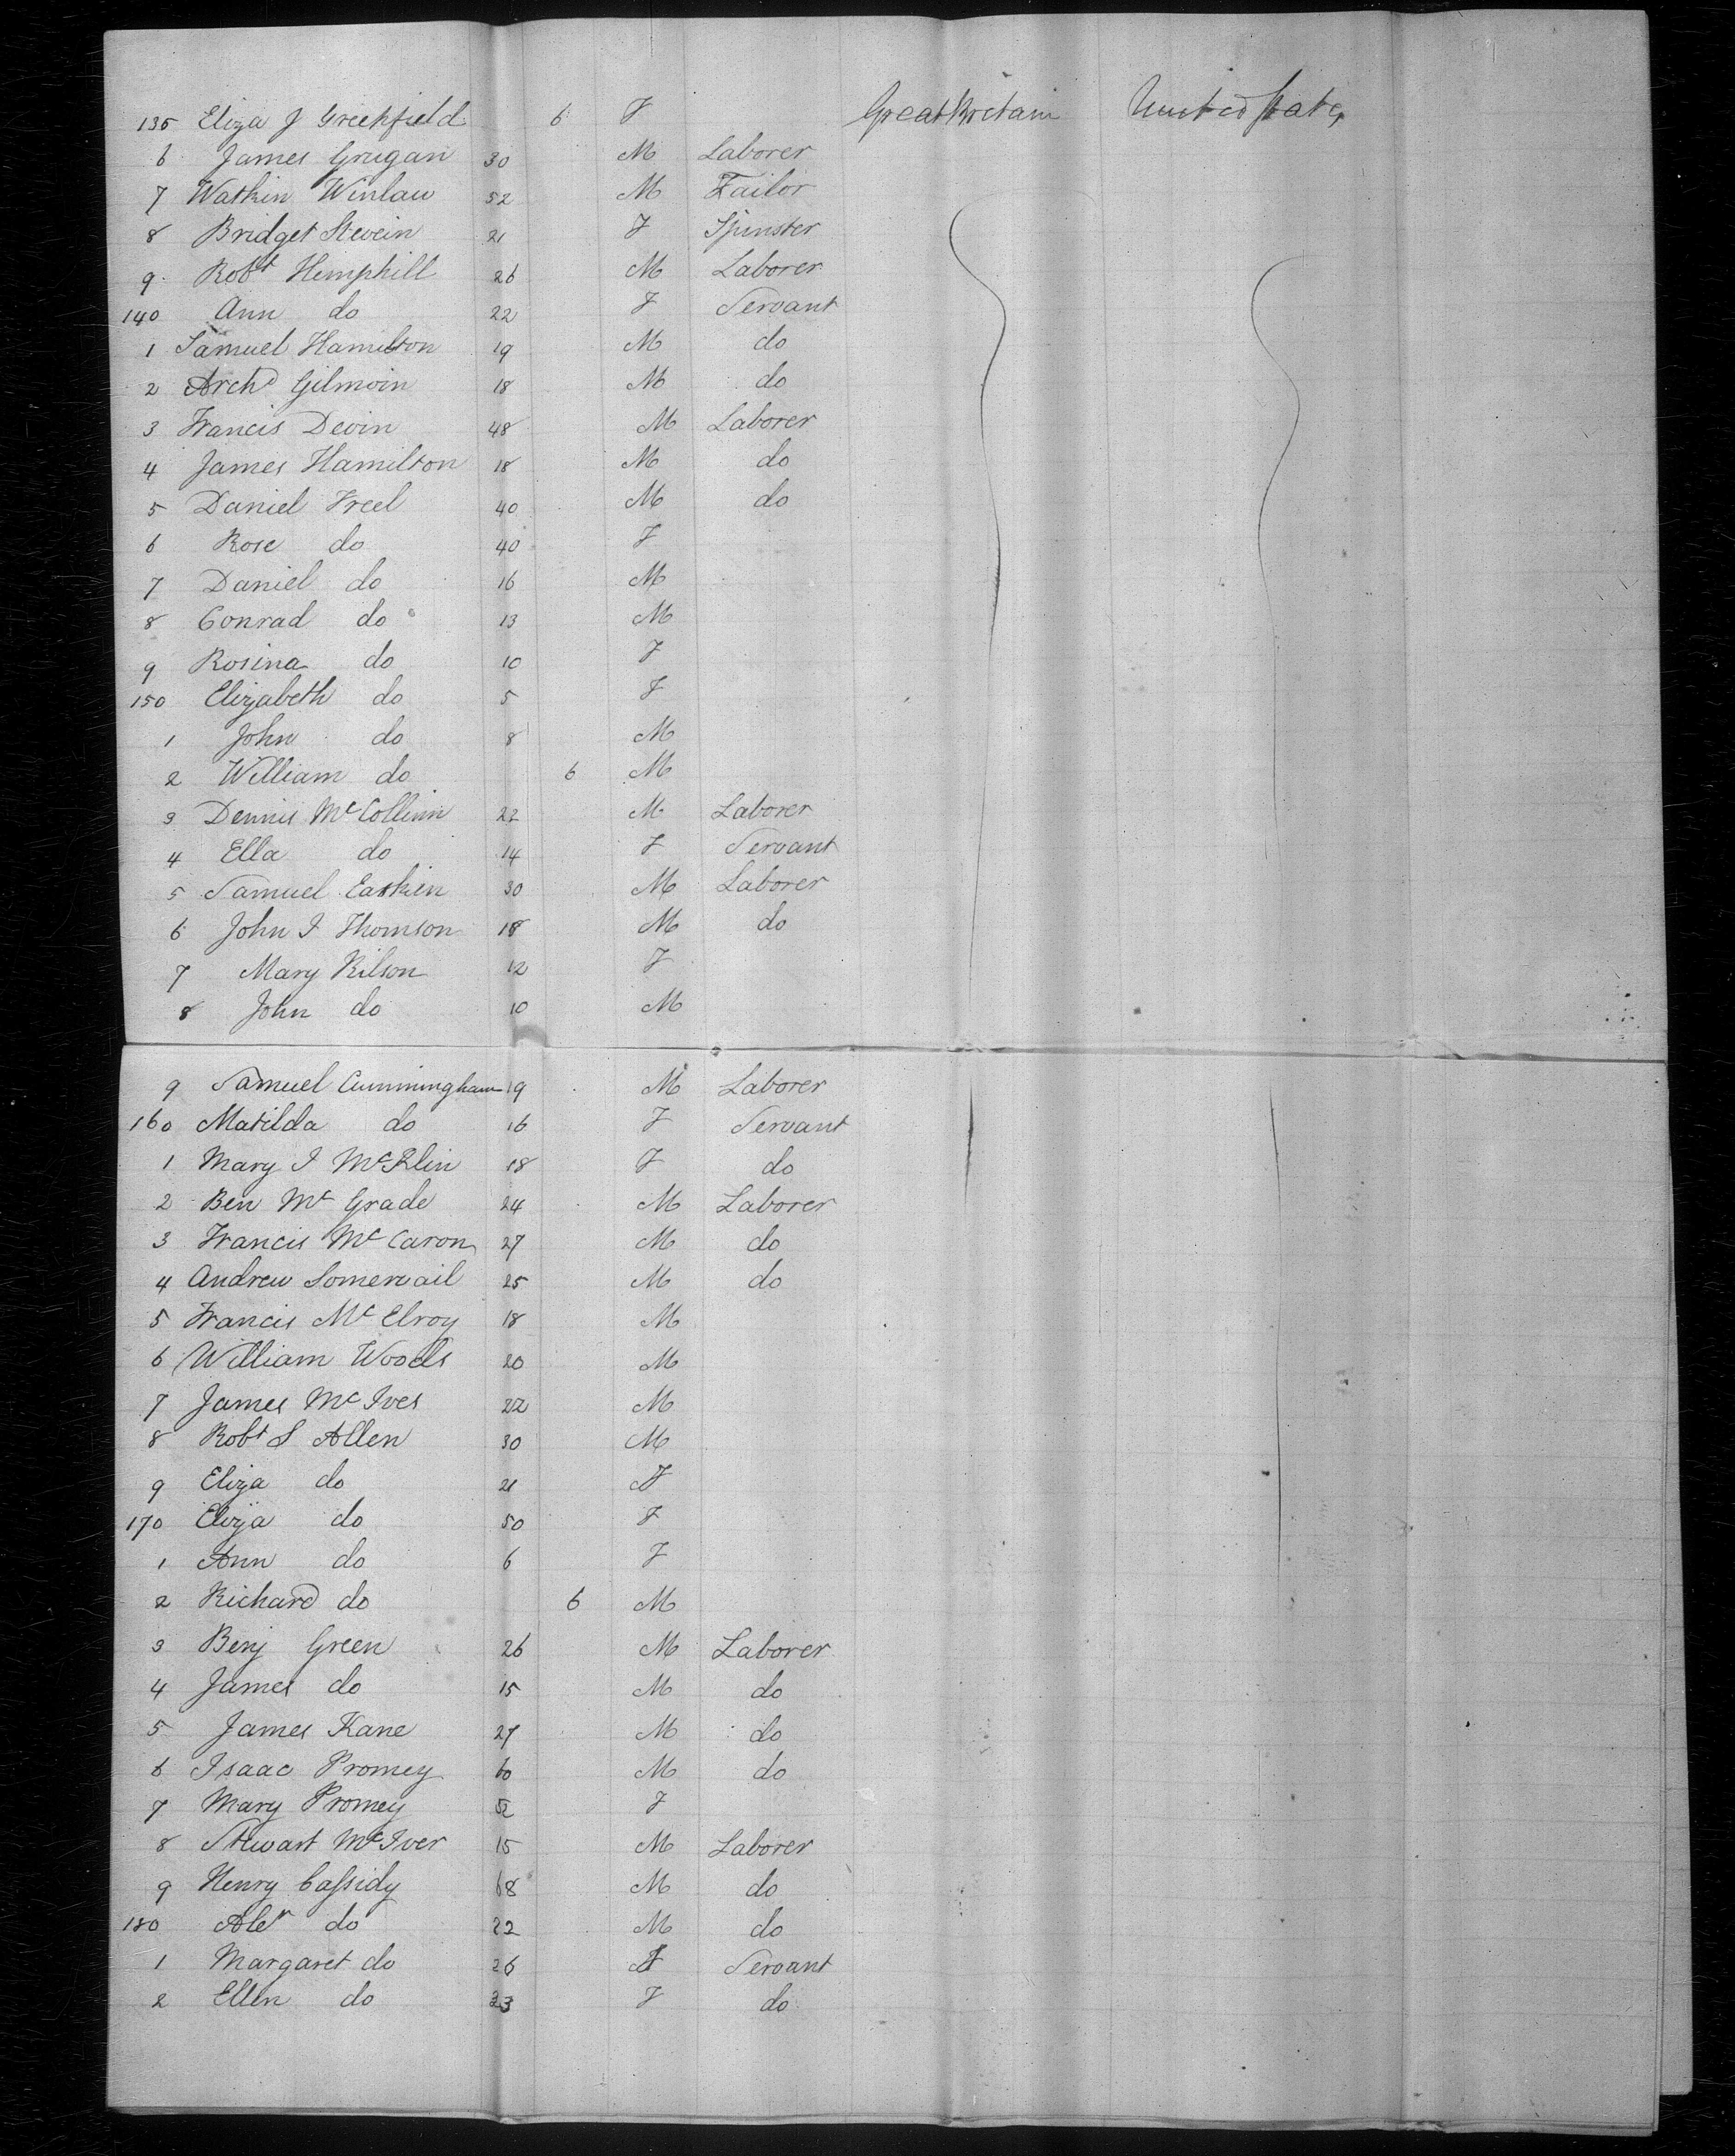 135 Eliza J Greenfield 6 F Great Britain United States
6 James Grugan 30 M Laborer
7 Watkin Winlaw 52 M Tailor
8 Bridget Stevein 21 F Spinster
9 Robt Hemphill 26 M Laborer
140 Ann do 22 F Servant
1 Samuel Hamilton 19 M do
2 Archd Gilmoin 18 M do
3 Francis Devin 48 M Laborer
4 James Hamilton 18 M do
5 Daniel Freel 40 M do
6 Rose do 40 F
7 Daniel do 16 M
8 Conrad do 13 M
9 Rosina do 10 F
150 Elizabeth do 5 F
1 John do 8 M
2 William do 6 M
3 Dennis McCollinn 22 M Laborer
4 Ella do 14 F Servant
5 Samuel Easkien 30 M Laborer
6 John I Thomson 18 M do
7 Mary Kilson 12 F
8 John do 10 M
9 Samuel Cunningham 19 M Laborer
160 Matilda do 16 F Servant
1 Mary I McKlin 18 F do
2 Ben Mc Grade 24 M Laborer
3 Francis Mc Caron 27 M do
4 Andrew Somervail 25 M do
5 Francis Mc Elroy 18 M
6 William Woods 20 M
7 James Mc Ives 22 M
8 Robt S Allen 30 M
9 Eliza do 21 F
170 Eliza do 50 F
1 Ann do 6 F
2 Richard do 6 M
3 Benj Green 26 M Laborer
4 James do 15 M do
5 James Kane 27 M do
6 Isaac Promey 60 M do
7 Mary Promey 52 F
8 Stewart McIver 15 M Laborer
9 Henry Cassidy 68 M do
180 Aler do 22 M do
1 Margaret do 26 F Servant
2 Ellen do 23 F do